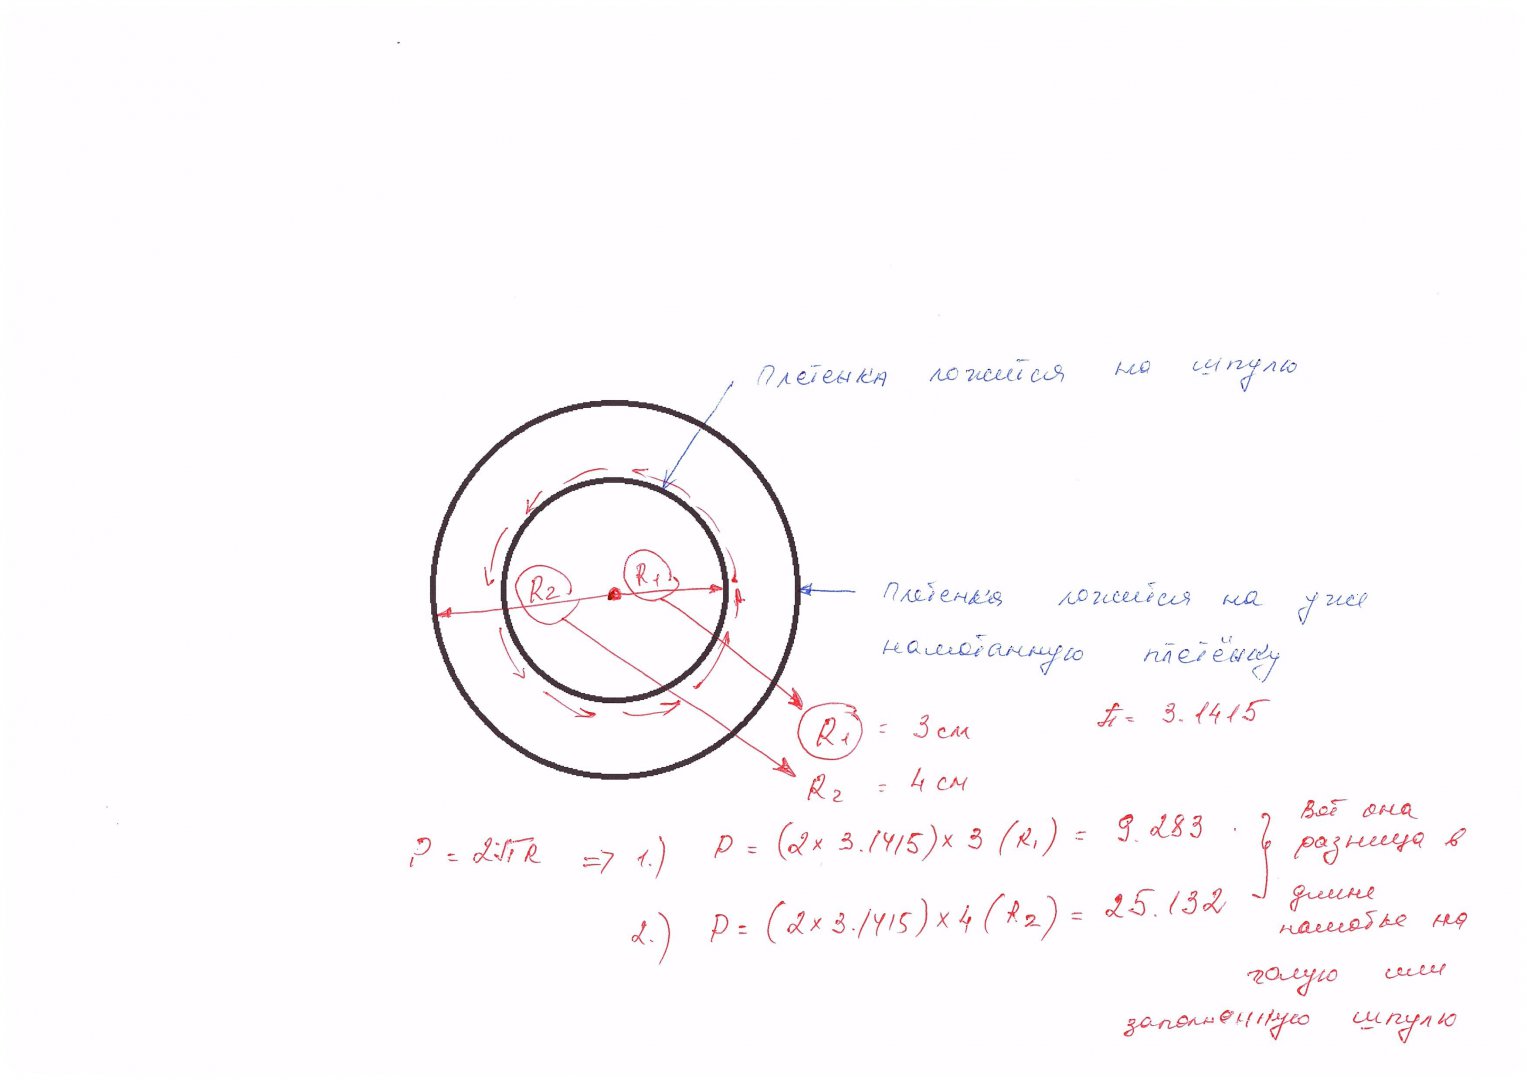 Плетенка ложится на шпулю
R2
R1
Плетенка ложится на уже
намотанную плетёнку
π = 3.1415
R1 = 3 см
R2 = 4 см
P = 2πR => 1.) P = (2 × 3.1415) × 3 (R1) = 9.283
2.) P = (2 × 3.1415) × 4 (R2) = 25.132
Вот она
разница в
длине
намотке на
голую или
заполненную шпулю